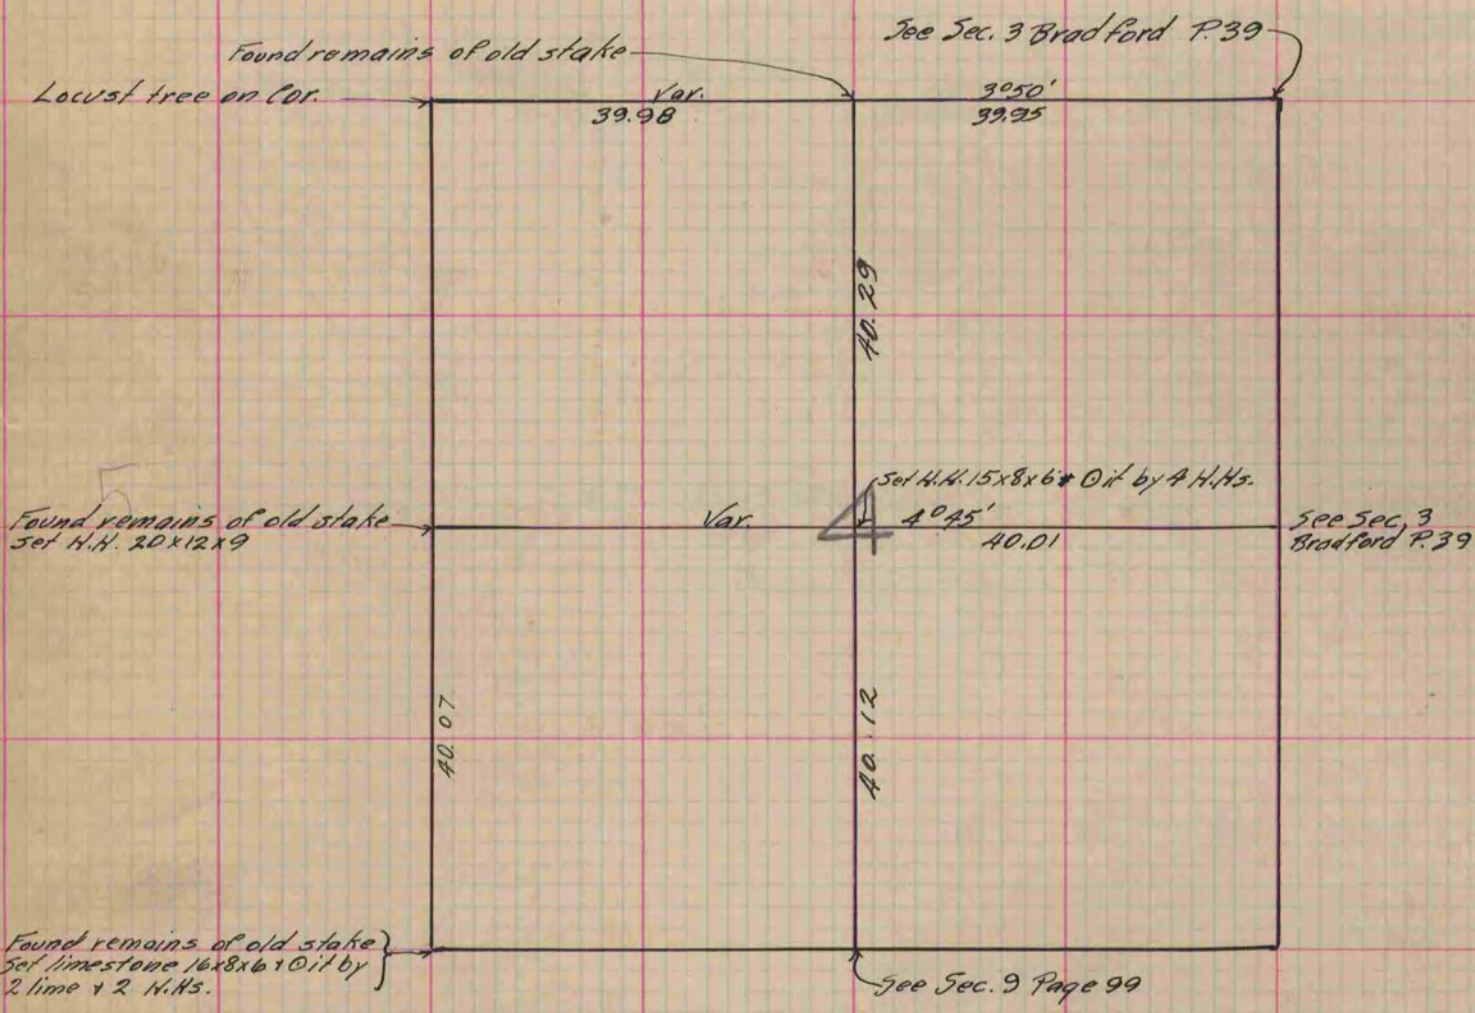 See Sec. 3 Bradford P. 39
Found remains of old stake
Locust tree on Cor.
Var. 3°50'
39.98
39.95
40.29
Set N.H. 15x8x6 & ⊙ it by 4 N.Hs.
4
5
Found remains of old stake
Set N.H. 20x12x9
Var. 4°45'
40.01
See Sec. 3
Bradford P. 39
40.07
40.12
Found remains of old stake
Set limestone 16x8x6 & ⊙ it by
2 lime & 2 N.Hs.
See Sec. 9 Page 99